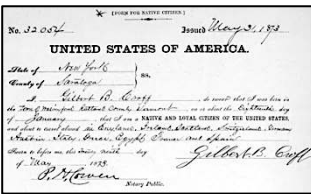 [FORM FOR NATIVE CITIZEN.]
No. 32054 Issued May 31, 1873
UNITED STATES OF AMERICA.
State of New York
County of Saratoga } SS.
I Gilbert B. Croff, do swear that I was born in
the Town of Rutland County Vermont, on or about the Eighteenth day
of January that I am a NATIVE AND LOYAL CITIZEN OF THE UNITED STATES,
and about to travel abroad in England, Ireland, Scotland, Switzerland, Germany
States, Greece, Egypt, and Spain
Sworn to before me, this day
of May 1873
Gilbert B. Croff
Notary Public.